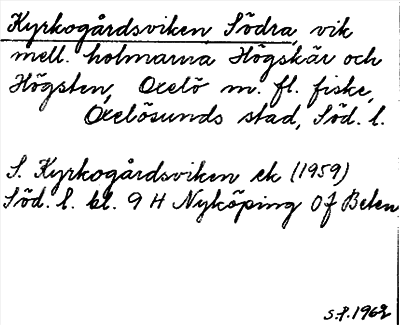 Kyrkogårdsviken Södra, vik
mell. holmarna Högskär och
Högsten, Oxelö m. fl. fiske,
Oxelösunds stad, Söd. l.
S. Kyrkogårdsviken ek (1959)
Söd. l. bl. 9 H Nyköping Of Beten
S.P. 1962